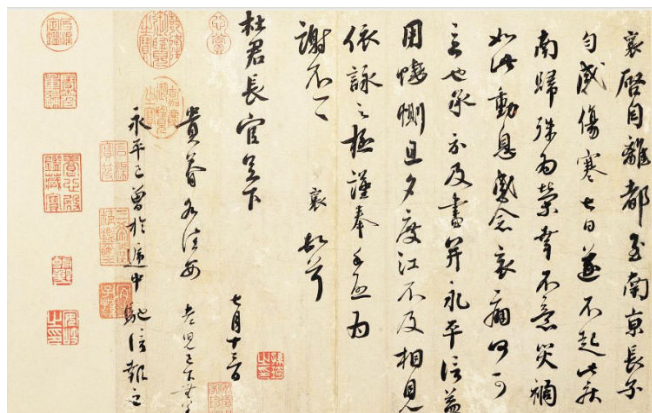 襄啓自離都至南京長子
匀感傷寒七日遂不起此咲
南歸殊爲榮幸不意災禍
如此動息感念哀痛何可
言也承示及書并永平信益
用悽惻旦夕度江不及相見
依詠之極謹奉手啓爲
謝不一一 襄頓首
杜君長官足下
七月十三日
貴眷各佳安 老兒已下無恙
永平已曾於遞中馳信報之